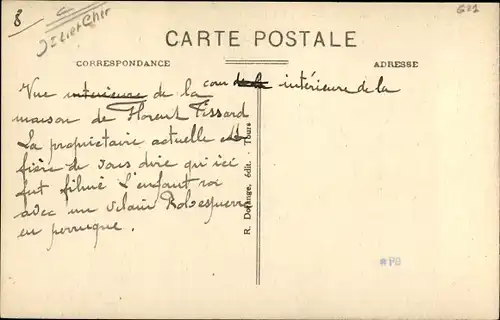 8
Loir et Cher
601
CARTE POSTALE
CORRESPONDANCE
ADRESSE
Vue interieure de la cour de la intérieure de la
maison de Florent Tissard
La propriétaire actuelle est
fière de vous dire qu'ici
fut filmé L'enfant roi
avec un vilain Robespierre
en perruque.
R. Dorange, édit. - Tours
#P9